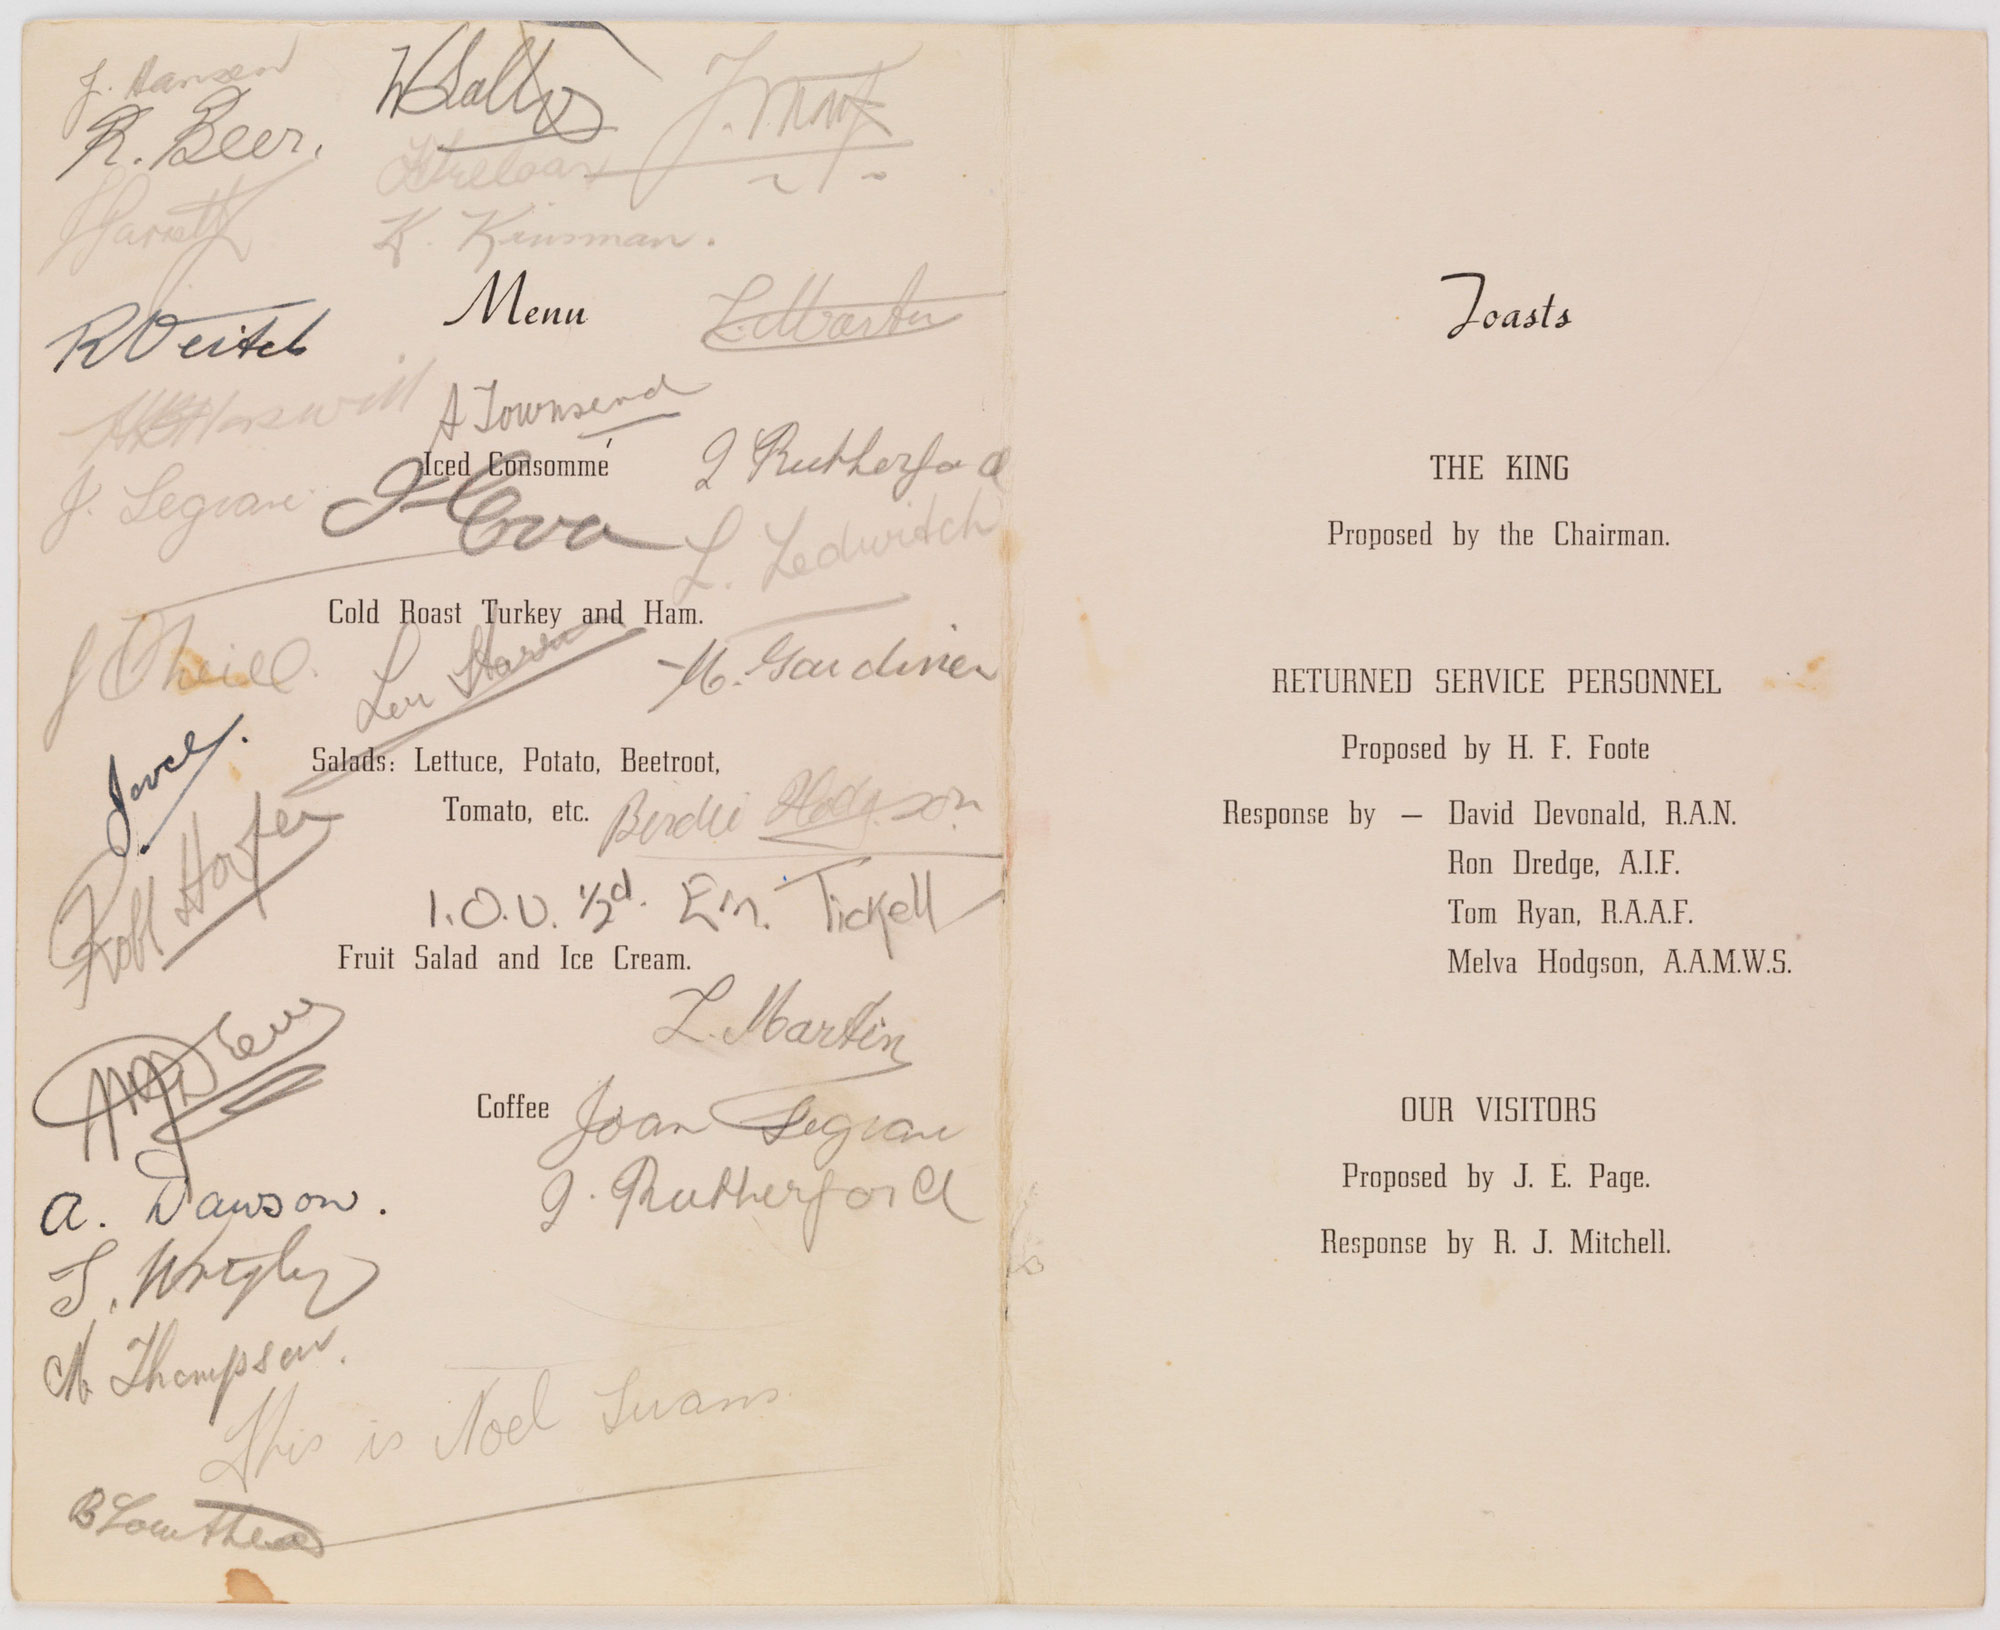 J. Hansen
R. Beer.
J Garrett
K. Kinsman.
R Veitch
Menu
L. Martin
Horswill
A Townsend
Iced Consommé
J Rutherford
J. Segrave
Cova
L. Ledwitch
Cold Roast Turkey and Ham.
J O'Neill.
Len
M. Gardiner
Joyce.
Salads: Lettuce, Potato, Beetroot,
Tomato, etc.
Birdie Hodgson.
Robt Harper
I.O.U. ½d. Em. Tickell
Fruit Salad and Ice Cream.
L. Martin
Drew
Coffee
Joan Segrave
J. Rutherford
A. Dawson.
J. Wrigley
N. Thompson.
This is Noel Evans
B Lowther
Toasts
THE KING
Proposed by the Chairman.
RETURNED SERVICE PERSONNEL
Proposed by H. F. Foote
Response by — David Devonald, R.A.N.
Ron Dredge, A.I.F.
Tom Ryan, R.A.A.F.
Melva Hodgson, A.A.M.W.S.
OUR VISITORS
Proposed by J. E. Page.
Response by R. J. Mitchell.